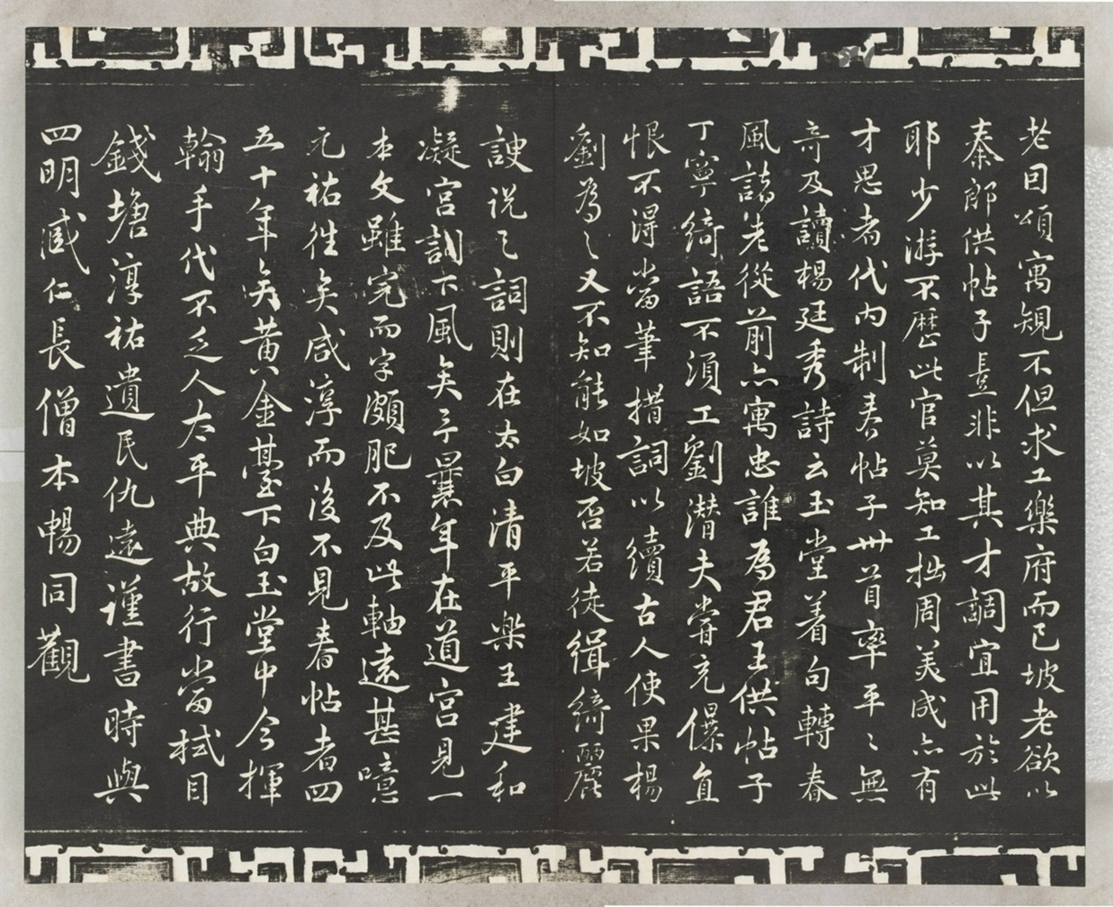 老因頌寓規不但求工樂府而已坡老欲以
秦郎供帖子豈非以其才調宜用於此
耶少游不歷此官莫知工拙周美成亦有
才思者代内制春帖子卅首率平〻無
奇及讀楊廷秀詩云玉堂著句轉春
風諸老從前亦寓忠誰為君王供帖子
丁寧綺語不須工劉潛夫嘗充儤直
恨不得當筆措詞以續古人使果楊
劉為之又不知能如坡否若徒緝綺麗
諛説之詞則在太白清平樂王建和
凝宮詞下風矣予曩年在道宮見一
本文雖完而字頗肥不及此軸遠甚噫
元祐徃矣咸淳而後不見春帖者四
五十年矣黄金臺下白玉堂中今揮
翰手代不乏人太平典故行當拭目
錢塘淳祐遺民仇遠謹書時與
四明臧仁長僧本暢同觀